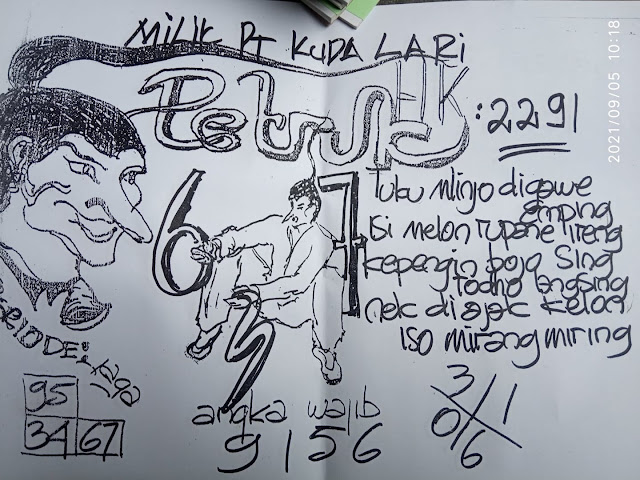 MILIK PT KUDA LARI
HK
Petruk
: 2291
2021/09/05 10:18
6
7
3
Tuku mlinjo digawe
emping
Isi melon rupane ireng
kepengin bojo sing
rodho langsing
nek diajak kelon
iso mirang miring
95
34 67
angka wajib
9 1 5 6
3 / 1
0 / 6